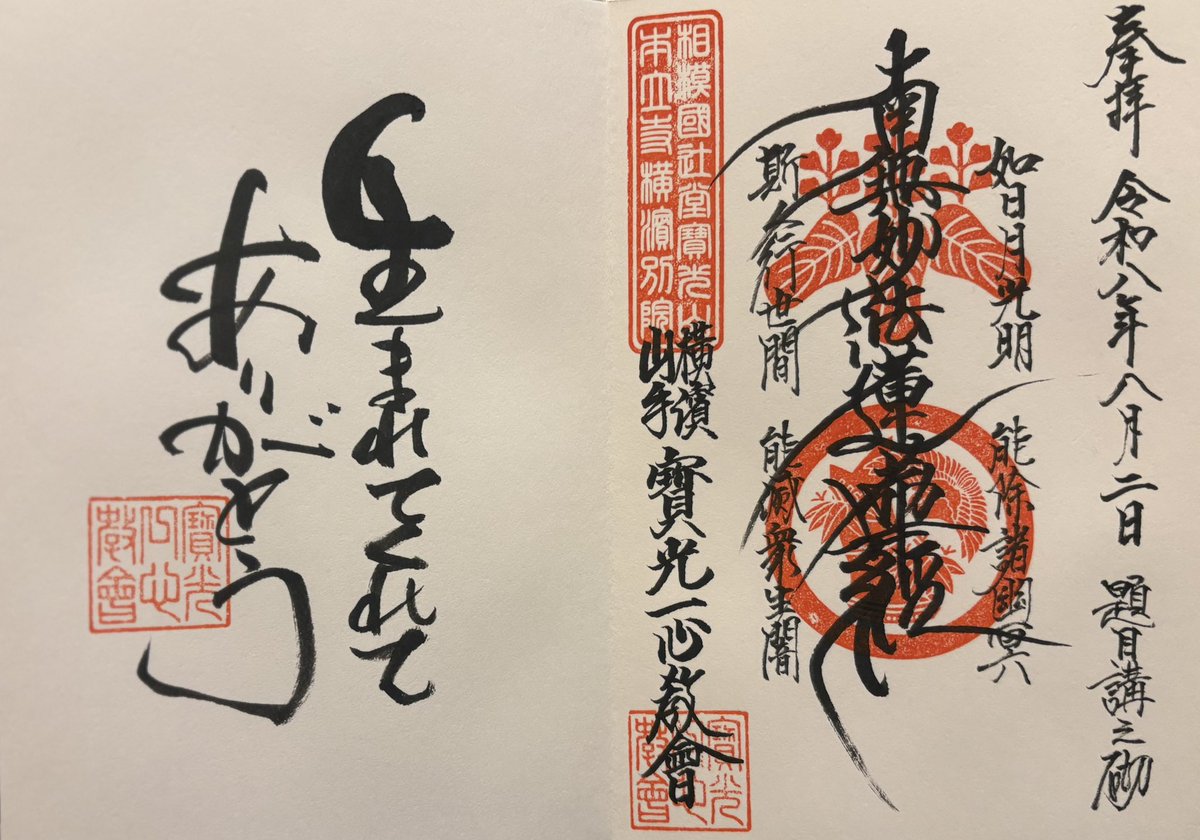 奉拝 令和八年八月二日 題目講之砌
如日月光明 能除諸幽冥
南無妙法蓮華経
斯人行世間 能滅衆生闇
相模國辻堂寶光山
本立寺横濱別院
横濱
山手
寶光一心教會
寶光一心教會
生まれてくれて
ありがとう
寶光一心教會